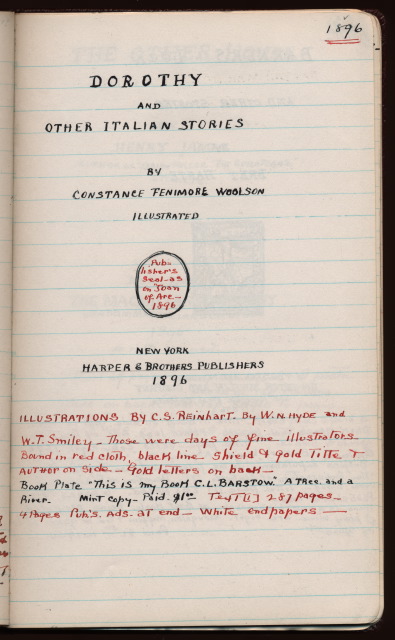 1896
DOROTHY
AND
OTHER ITALIAN STORIES
BY
CONSTANCE FENIMORE WOOLSON
ILLUSTRATED
Pub-
lisher's
Seal-as
on Joan
of Arc-
1896
NEW YORK
HARPER & BROTHERS PUBLISHERS
1896
ILLUSTRATIONS By C.S. REinharT. By W.N. HYDE and
W.T. Smiley - Those were days of fine illustrators
Bound in red cloth, black line shield & gold Title &
AUTHOR on side - Gold letters on back -
Book Plate "This is my Book C.L. BARSTOW." A Tree and a
River. Mint Copy - Paid $1.00 TexT [1] 287 pages -
4 Pages Pub's. Ads. aT end - White endpapers -